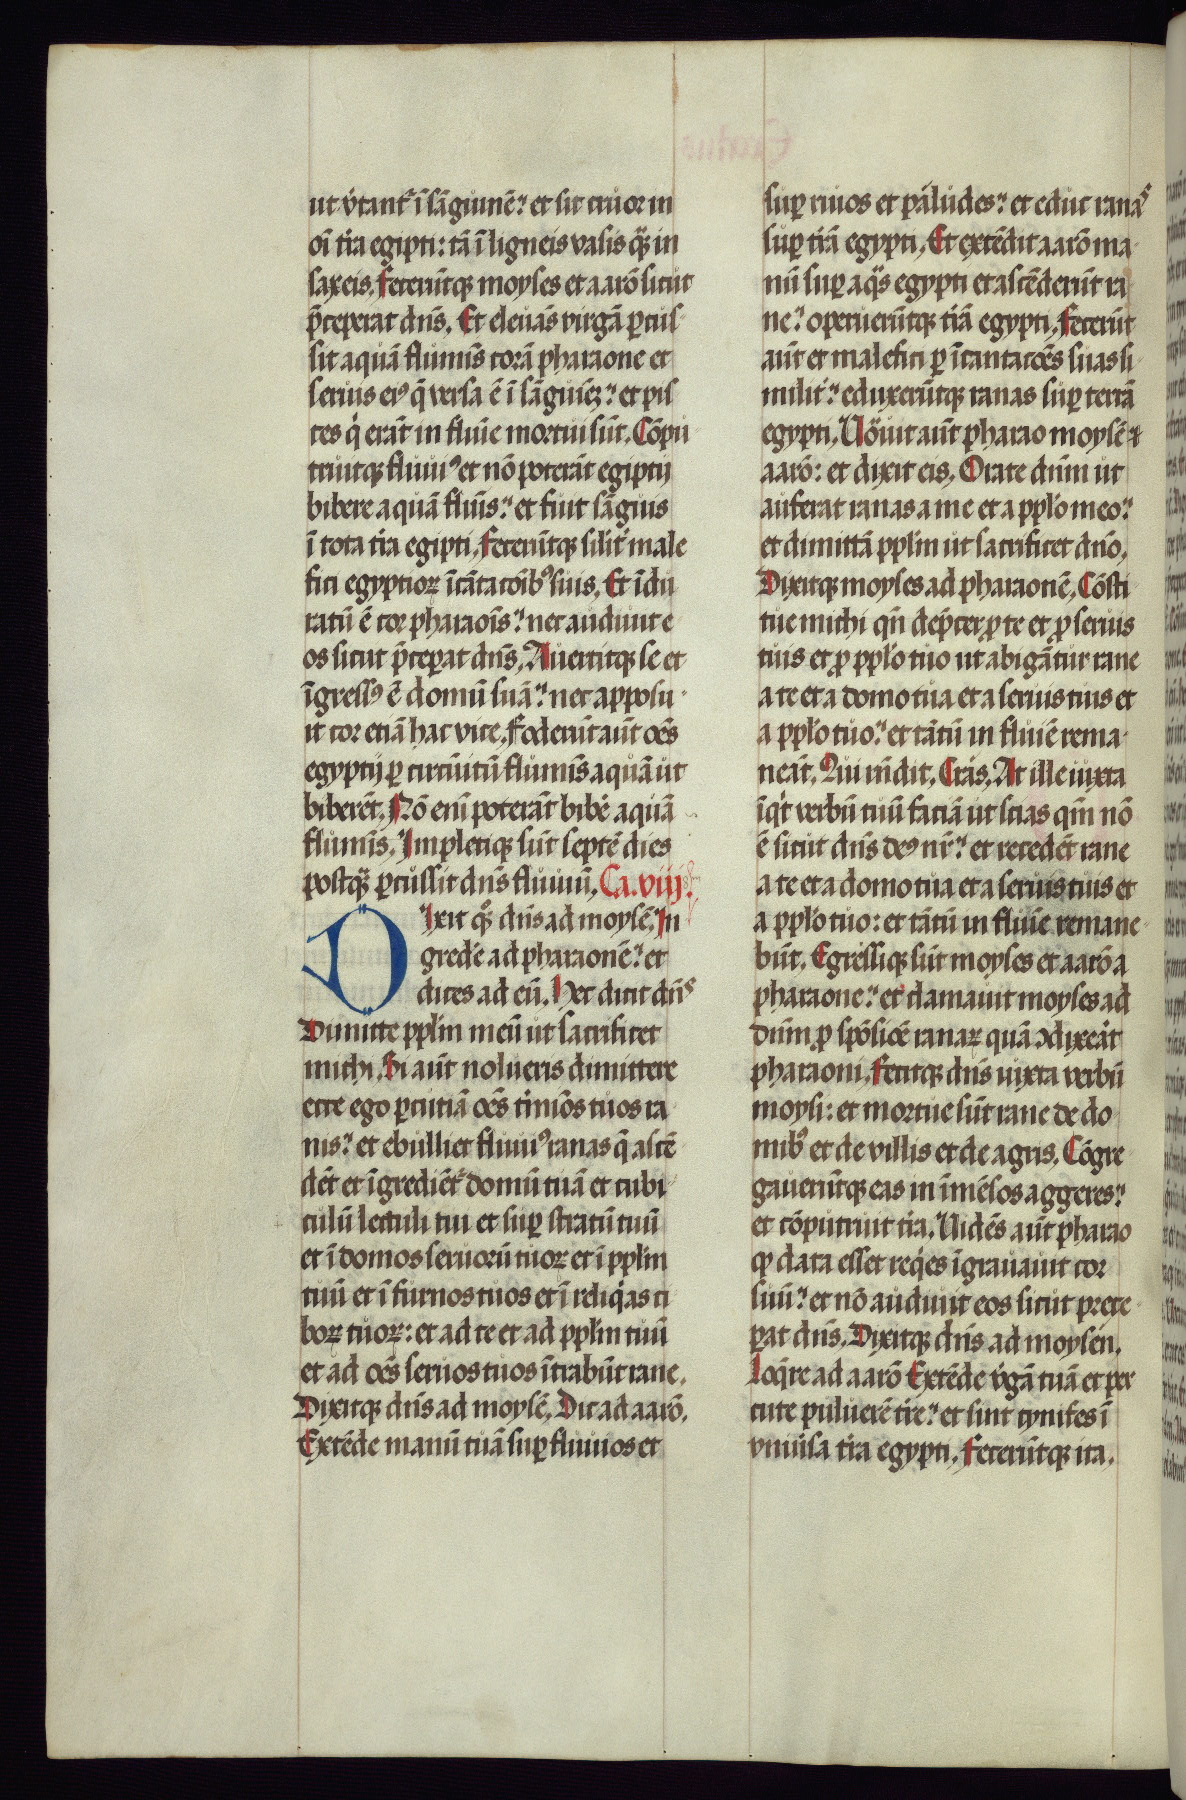 ut v̓tant᷑ ī sāguinē? et sit cruor in
oī t̄ra egipti: tā ī ligneis vasis q̄ꝫ in
saxeis. Fecerūtqꝫ moyses et aarō sicut
p̄ceperat dn̄s. Et eleuās virgā ꝑcus
sit aquā flumīs corā pharaone et
seruis eiꝰ q̄ versa ē ī sāguinē? et pis
ces q̇ erāt in fluīe mortui sūt. Cōpu
truitqꝫ fluuiꝰ et nō poterāt egiptij
bibere aquā fluīs? et fuit sāguis
ī tota t̄ra egipti. Feceruntqꝫ silit᷑ male
fici egyptioꝝ īcātatōibꝰ suis. Et īdu
ratū ē cor pharaoīs? nec audiuit e
os sicut p̄ceperat dn̄s. Auertitqꝫ se et
īgressꝰ ē domū suā? nec apposu
it cor etiā hac vice. Foderūt aūt oēs
egyptij ꝑ circūitū flumīs aquā ut
biberēt. Nō enī poterāt bibe̓ aquā
flumīs. Impletiqꝫ sūt septē dies
postq̄ꝫ ꝑcussit dn̄s fluuiū. Ca. viij.
DIxit qͦꝫ dn̄s ad moysē. In
grede̓ ad pharaonē? et
dices ad eū. Hec dicit dn̄s
Dimitte pplm̄ meū ut sacrificet
michi. Si aūt nolueris dimittere
ecce ego ꝑcutiā oēs t̓miōs tuos ra
nis? et ebulliet fluuiꝰ ranas q̄ ascē
dēt et īgrediēt᷑ domū tuā et cubi
culū lectuli tui et suꝑ stratū tuū
et ī domos seruorū tuoꝝ et ī pplm̄
tuū et ī furnos tuos et ī reliq̇as ci
boꝝ tuoꝝ: et ad te et ad pplm̄ tuū
et ad oēs seruos tuos ītrabūt rane.
Dixitqꝫ dn̄s ad moysē. Dic ad aarō.
Extēde manū tuā suꝑ fluuios et
suꝑ riuos et paludes? et educ ranas
suꝑ t̄rā egypti. Et extēdit aarō ma
nū suꝑ aq̄s egypti et ascēderūt ra
ne? operuerūtqꝫ t̄rā egypti. Fecerūt
aūt et malefici ꝑ īcantacōes suas si
milit᷑? eduxerūtqꝫ ranas suꝑ terrā
egypti. Uocauit aūt pharao moysē ⁊
aarō: et dixit eis. Orate dn̄m ut
auferat ranas a me et a pplo meo?
et dimittā pplm̄ ut sacrificet dn̄o.
Dixitqꝫ moyses ad pharaonē. Cōsti
tue michi qn̄ dep̄cer ꝓ te et ꝓ seruis
tuis et ꝓ pplo tuo ut abigātur rane
a te et a domo tua et a seruis tuis et
a pplo tuo? et tātū in fluīē rema
neāt. Qui rn̄dit. Cras. At ille iuxta
īq̇t verbū tuū faciā ut scias qm̄ nō
ē sicut dn̄s deꝰ nr̄? et recedēt rane
a te et a domo tua et a seruis tuis et
a pplo tuo: et tātū in fluīe remane
būt. Egressiqꝫ sūt moyses et aarō a
pharaone? et clamauit moyses ad
dūm ꝓ spōsiōe ranaꝝ quā ↄdixe̓at
pharaoni. Fecitqꝫ dn̄s iuxta verbū
moysi: et mortue sūt rane de do
mibꝰ et de villis et de agris. Cōgre
gaueruntqꝫ eas in īmēsos aggeres?
et cōputruit t̄ra. Uidēs aūt pharao
ꝙ data esset req̇es īgrauauit cor
suū? et nō audiuit eos sicut prece
ꝑat dn̄s. Dixitqꝫ dn̄s ad moysen.
Loq̄re ad aarō Extēde v̓gā tuā et per
cute puluerē t̄re? et sint cynifes ī
vniu̓sa t̄ra egypti. Fecerūtqꝫ ita.